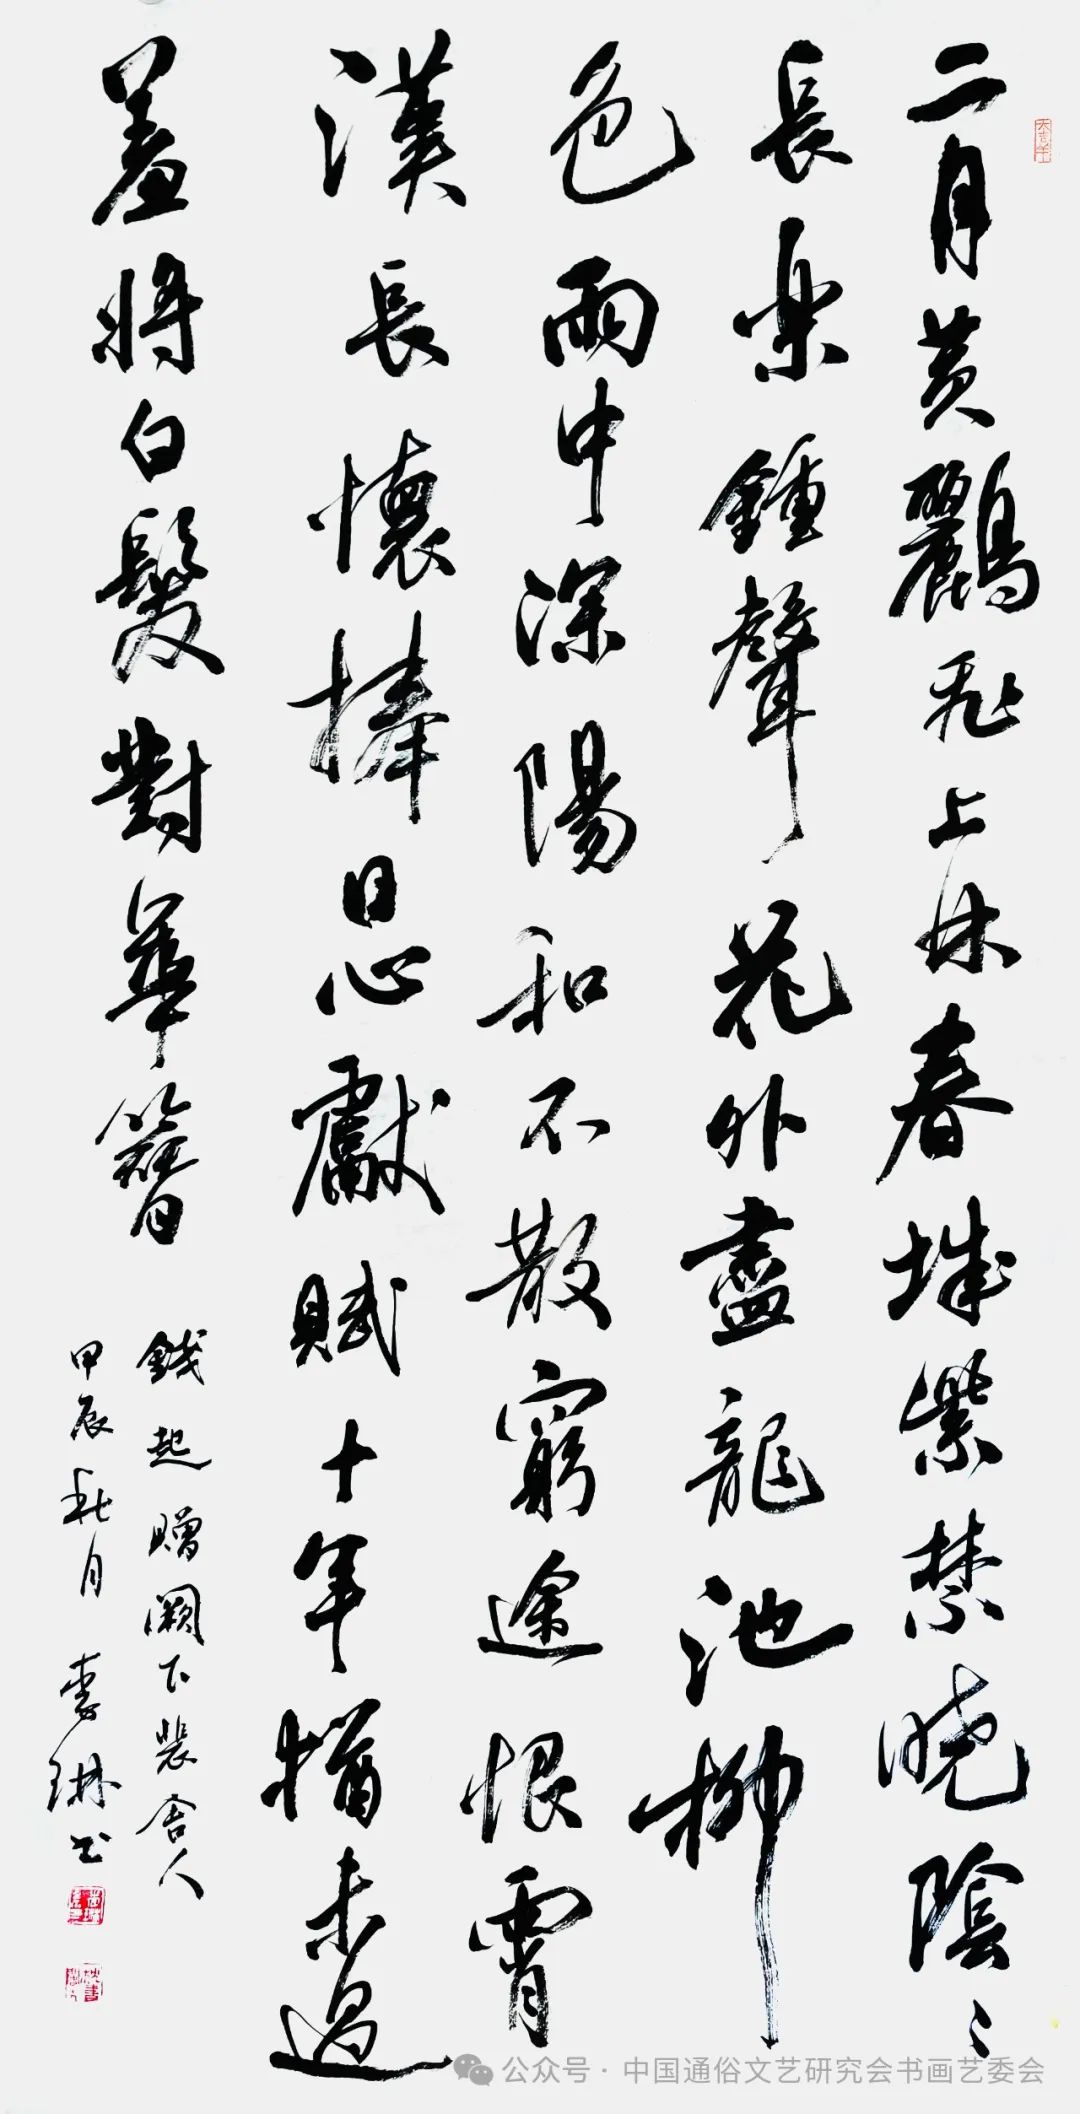 二月黄鸝飛上林春城紫禁曉陰〻
長樂鍾聲花外盡龍池柳
色雨中深陽和不散窮途恨霄
漢長懷捧日心獻賦十年猶未遇
羞將白髮對華簪
錢起 贈闕下裴舍人
甲辰秋月 琳书
公众号 · 中国通俗文艺研究会书画艺委会